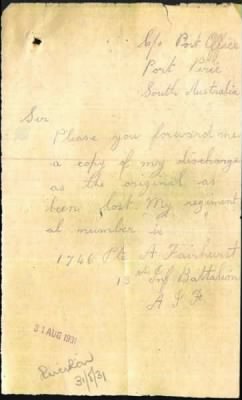 C/o Port Office
Port Pirie
South Australia
Sir
Please you forward me
a copy of my discharge
as the original as
been lost. My regiment
al number is
1746 Pte A Fairhurst
13th Inf Battalion
A I F
31 AUG 1931
31/8/31